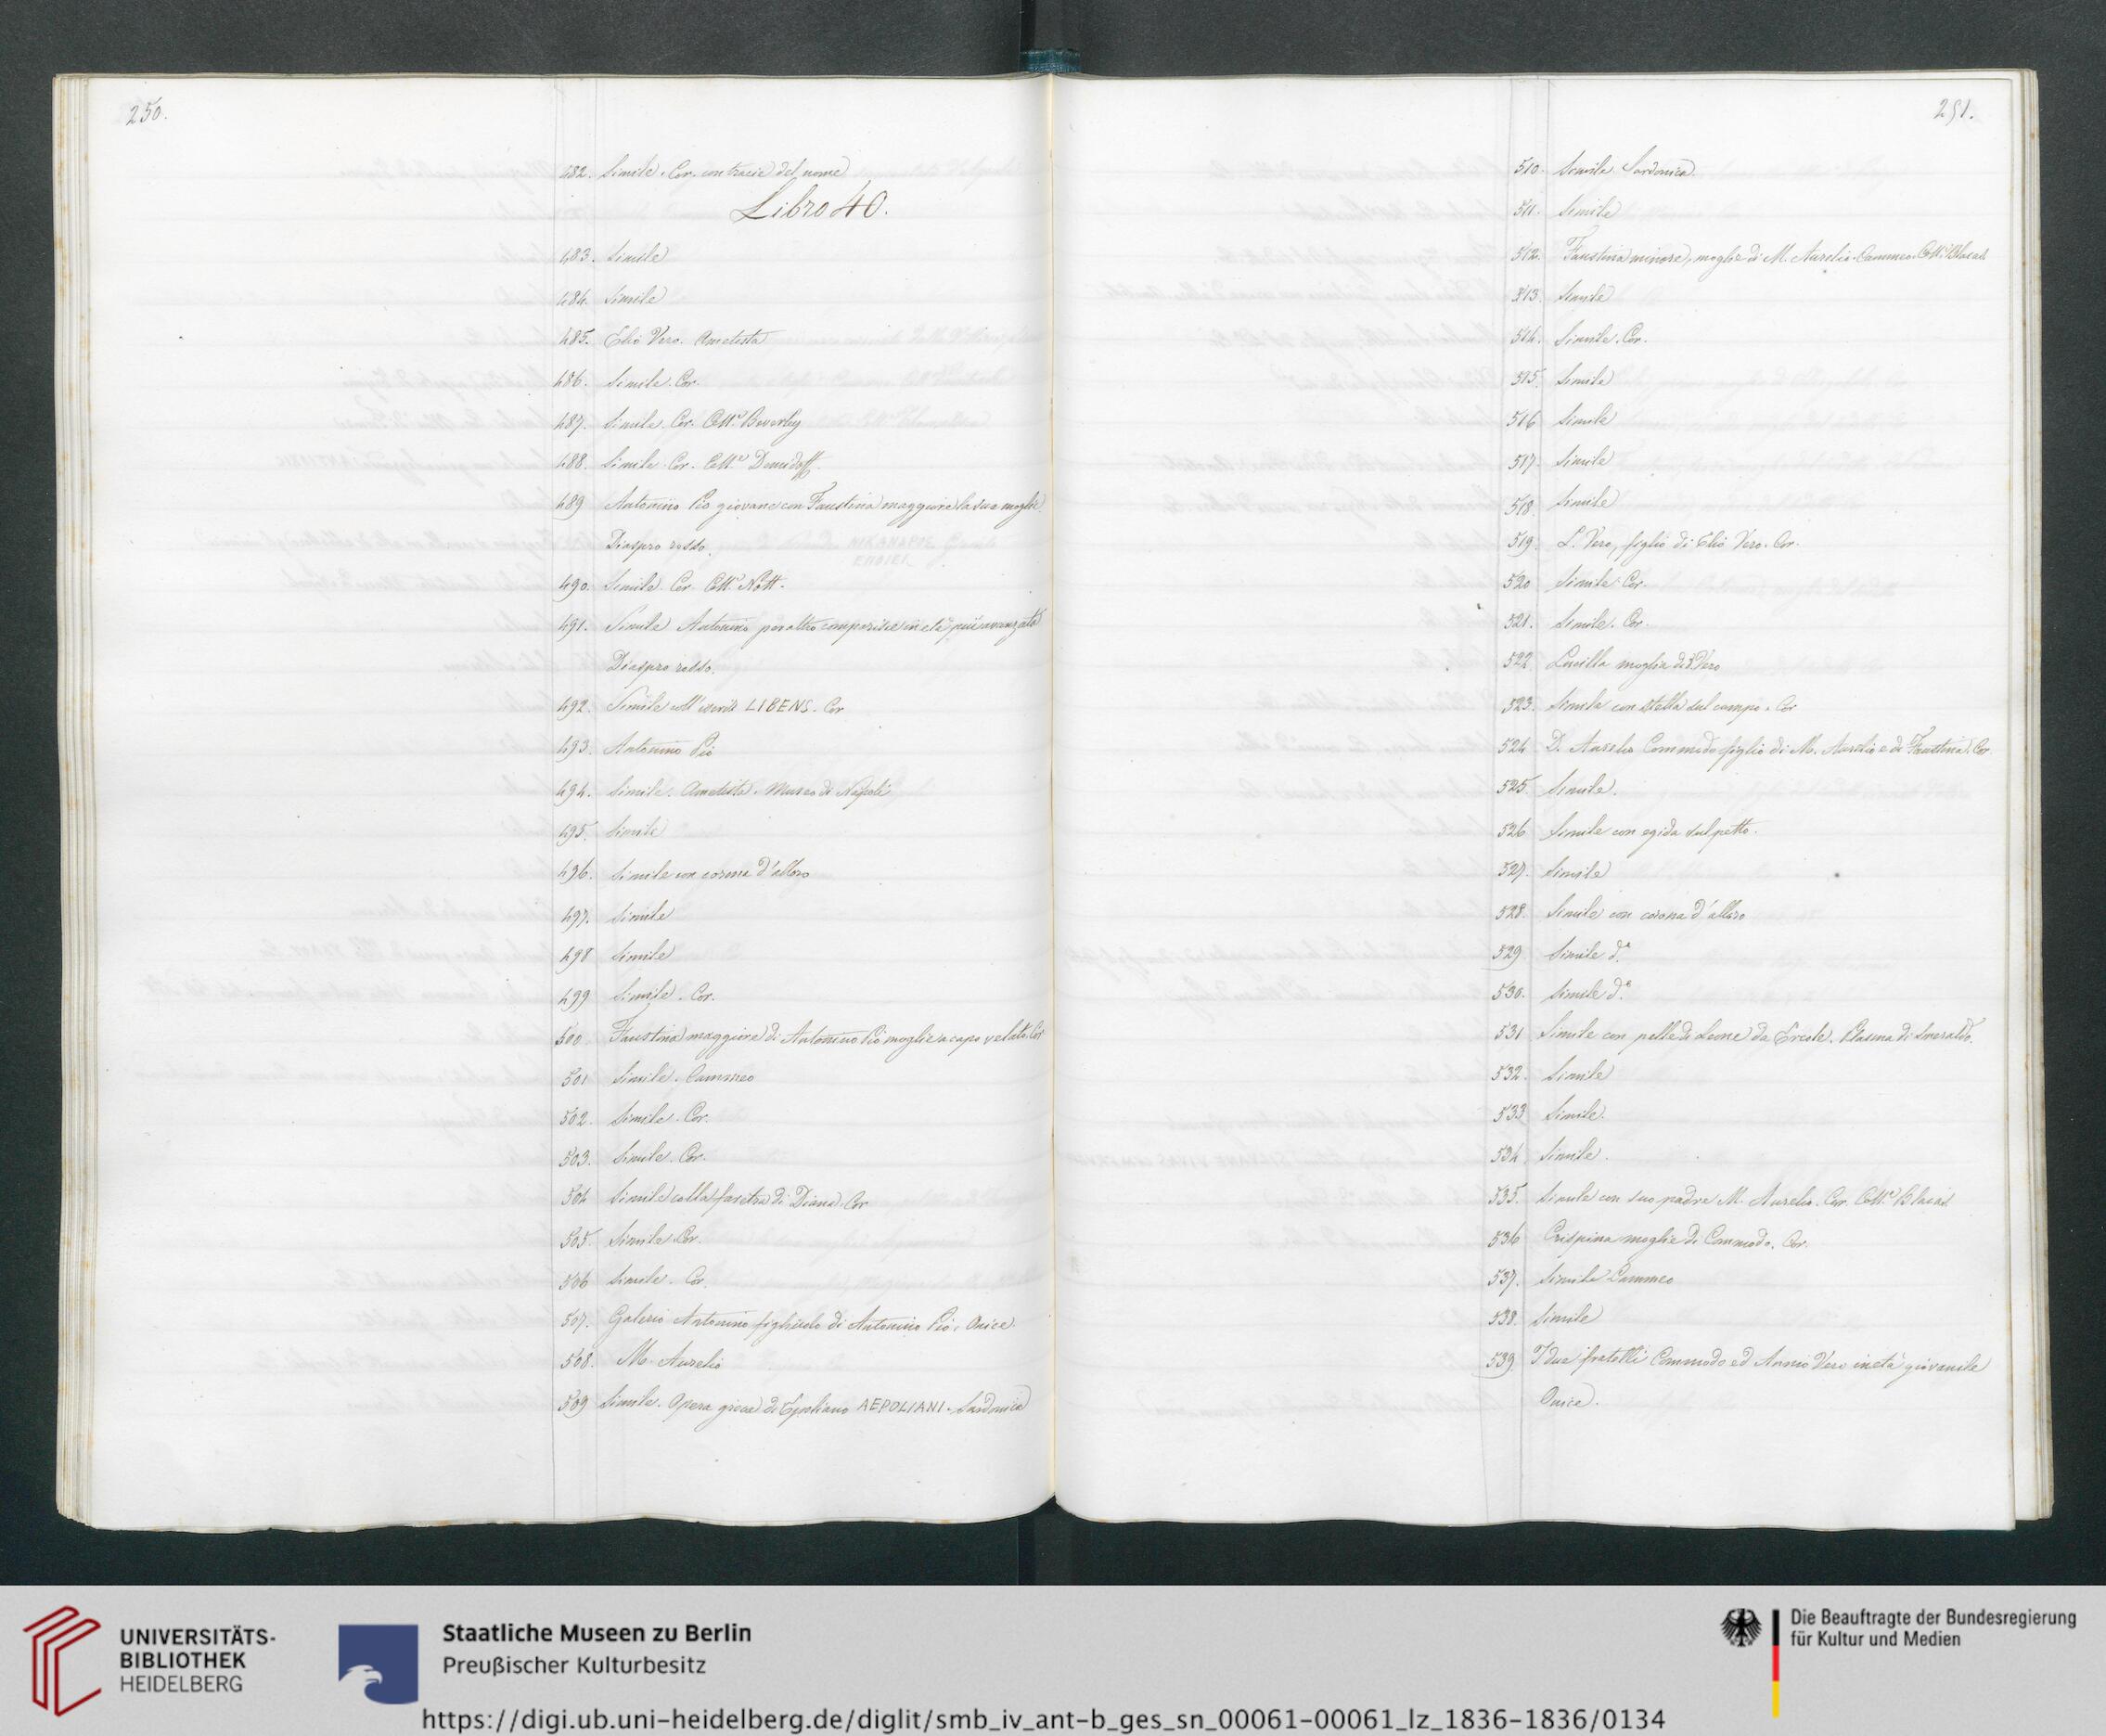 250.
482. Simile. Cor. con tracie del nome
Libro 40.
483. Simile
484. Simile
485. Elio Vero. Ametista
486. Simile. Cor.
487. Simile. Cor. Coll.e Beverley
488. Simile. Cor. Coll.e Demidoff.
489 Antonino Pio giovane con Faustina maggiore la sua moglie.
Diaspro rosso.
490. Simile. Cor. Coll.e Nott.
491. Simile Antonino per altro comparisce in età più avanzata
Diaspro rosso.
492. Simile coll' LIBENS. Cor
493. Antonino Pio
494. Simile. Ametista. Museo di Napoli
495. Simile
496. Simile con corona d'alloro
497. Simile
498 Simile
499 Simile. Cor.
500 Faustina maggiore di Antonino Pio moglie a capo velato. Cor
501 Simile. Cammeo
502. Simile. Cor.
503. Simile. Cor.
504 Simile colla faretra di Diana. Cor
505. Simile Cor.
506 Simile. Cor
507. Galerio Antonino figliuolo di Antonino Pio. Onice.
508. M. Aurelio
509 Simile. Opera greca di Epoliano AEPOLIANI. Sardonica
251.
510. Simile Sardonica
511. Simile
512. Faustina minore, moglie di M. Aurelio. Cammeo. Coll.e Blacas
513. Simile
514. Simile. Cor.
515. Simile
516 Simile
517. Simile
518. Simile
519. L. Vero, figlio di Elio Vero. Cor.
520 Simile Cor.
521. Simile. Cor.
522 Lucilla moglie di L. Vero
523. Simile con stella sul campo. Cor
524 D. Aurelio Commodo figlio di M. Aurelio e di Faustina. Cor.
525. Simile.
526 Simile con egida sul petto.
527. Simile
528. Simile con corona d'alloro
529 Simile d.o
530. Simile d.o
531 Simile con pelle di Leone da Ercole. Plasma di Smeraldo.
532. Simile
533 Simile.
534 Simile.
535. Simile con suo padre M. Aurelio. Cor. Coll.e Blacas
536 Crispina moglie di Commodo. Cor.
537. Simile Cammeo
538. Simile
539 I due fratelli Commodo ed Annio Vero in età giovanile
Onice.
UNIVERSITÄTS-
BIBLIOTHEK
HEIDELBERG
Staatliche Museen zu Berlin
Preußischer Kulturbesitz
Die Beauftragte der Bundesregierung
für Kultur und Medien
https://digi.ub.uni-heidelberg.de/diglit/smb_iv_ant-b_ges_sn_00061-00061_lz_1836-1836/0134